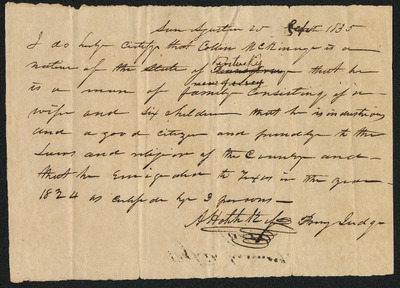 San Agustin 25 Sept 1835
I do hereby certify that Collin McKinney is a
native of the State of Kentucky that he
is a man of family consisting of a
wife and six children that he is industrious
and a good citizen and friendly to the
Laws and religion of the Country and
that he Emigrated to Texas in the year
1824 as certified by 3 persons
A Hotchkiss Judge